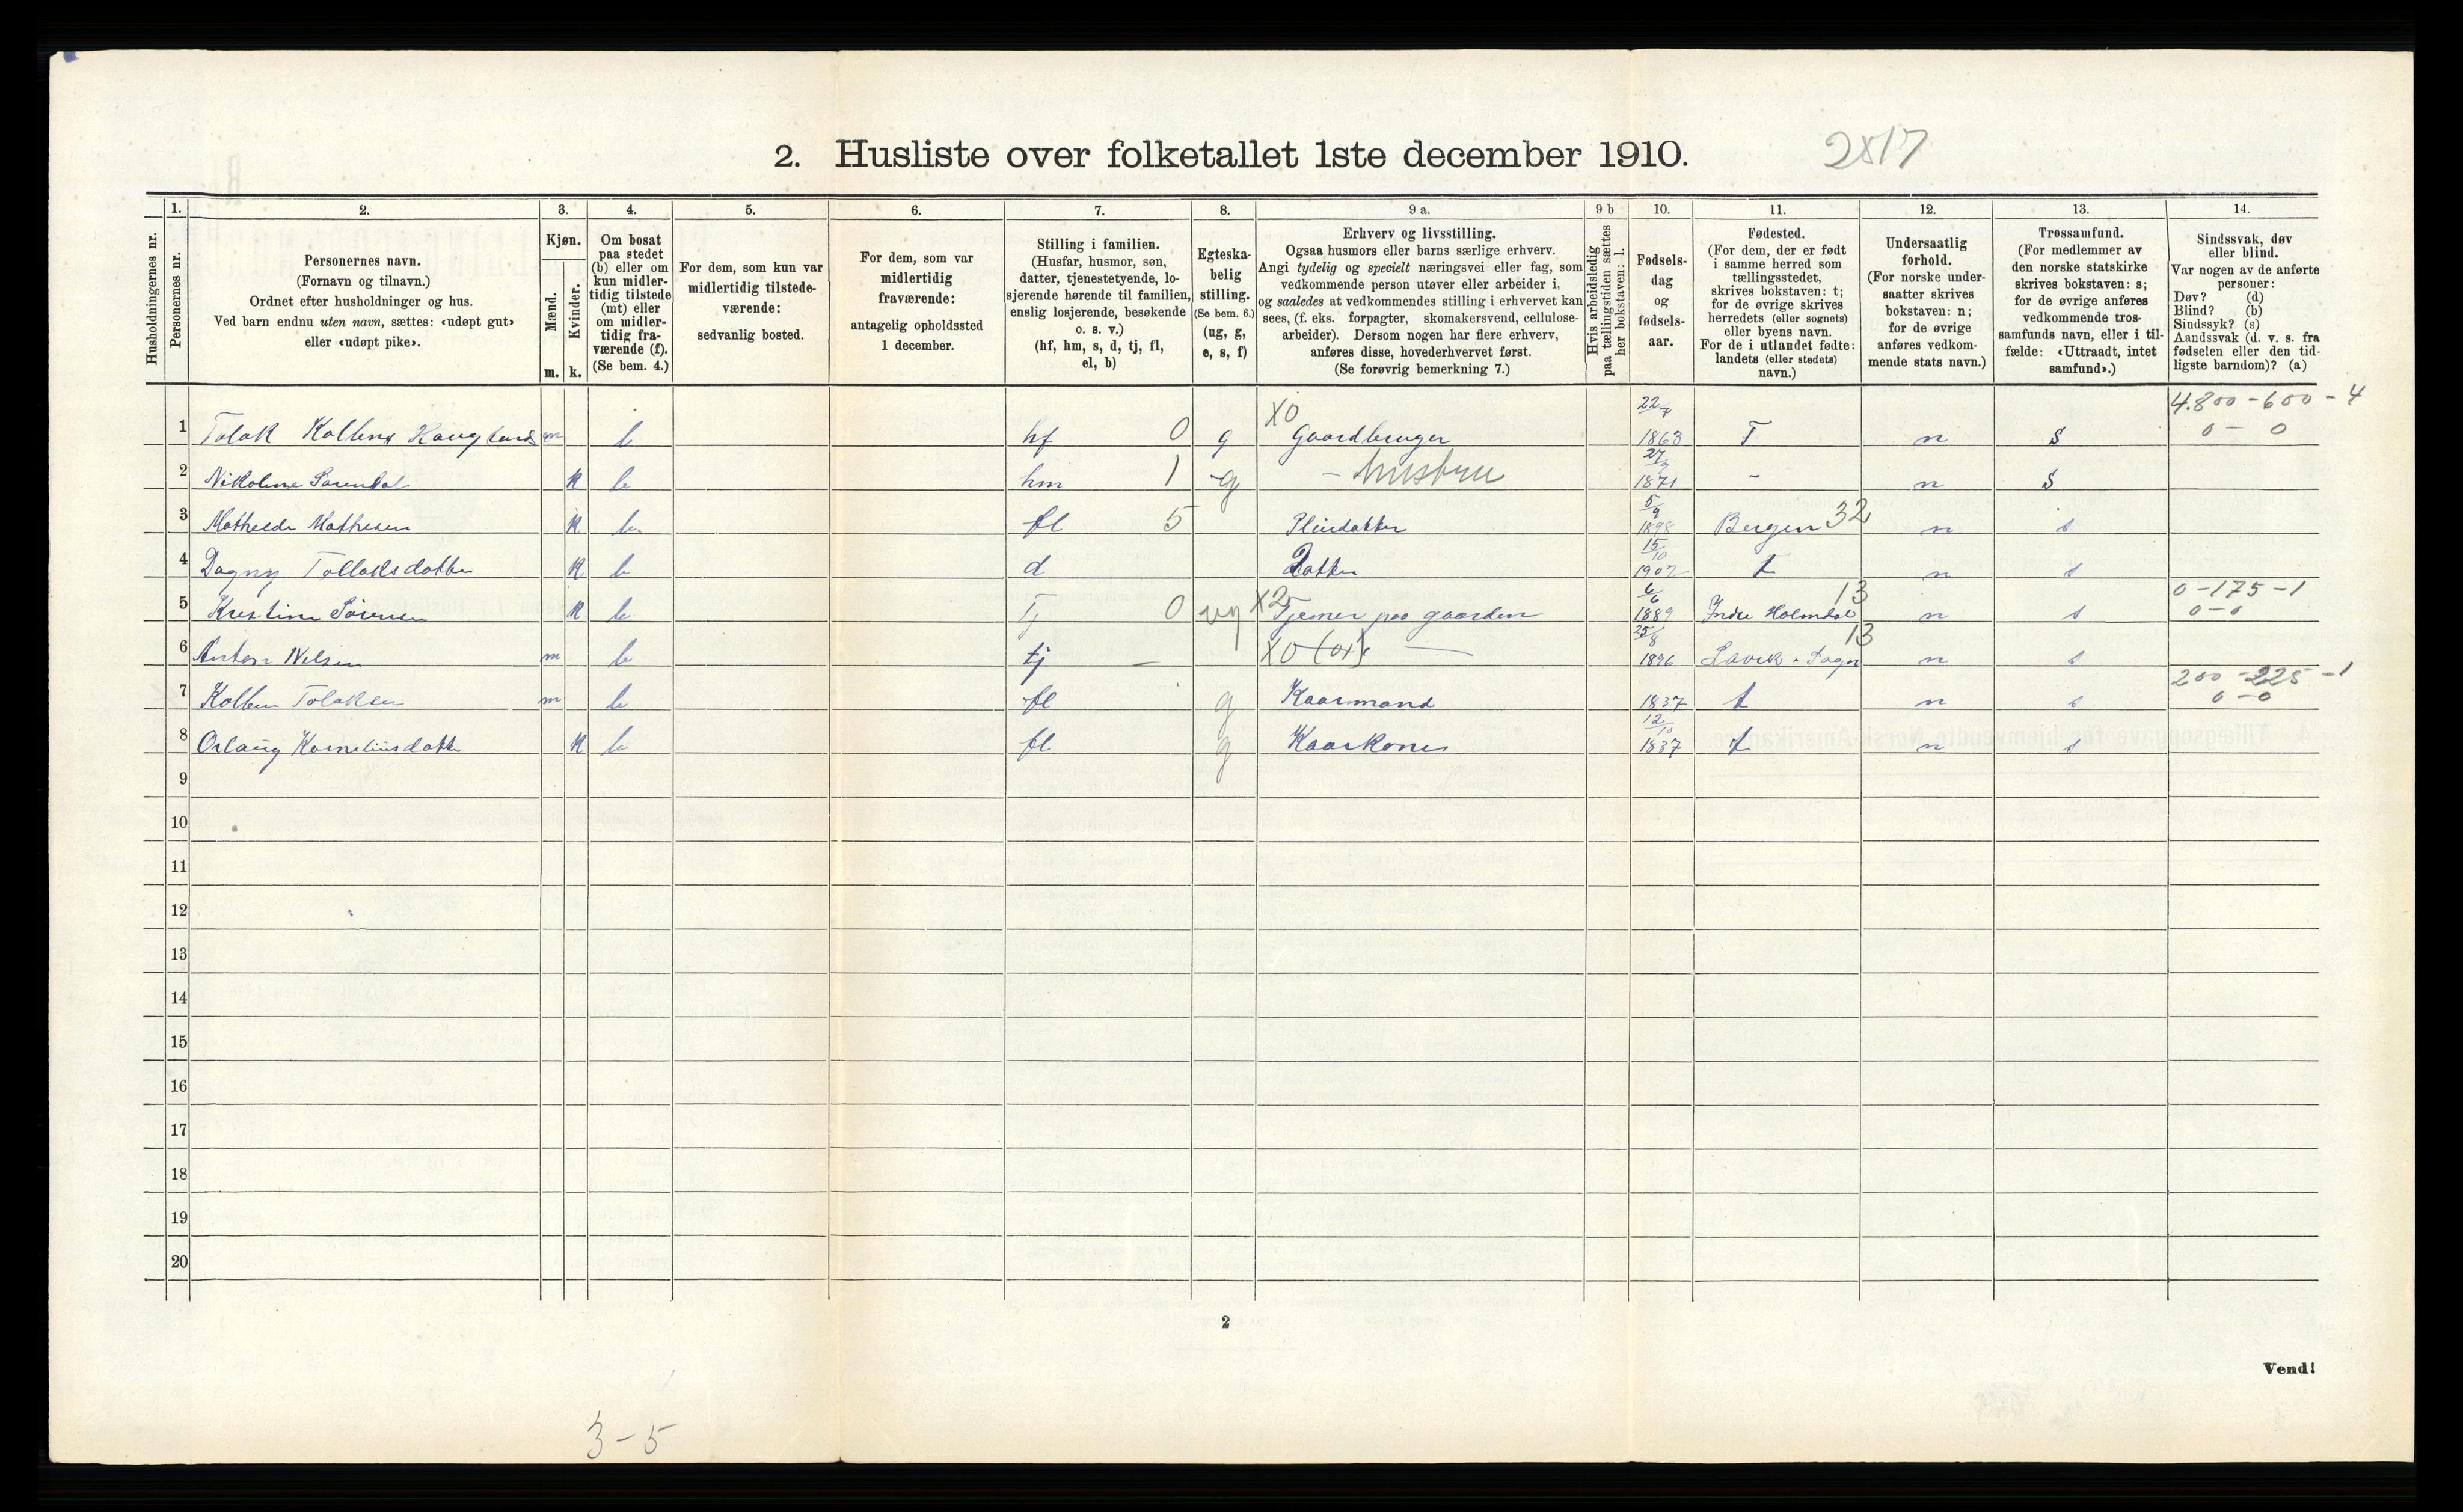 2. Husliste over folketallet 1ste december 1910.
2817
Husholdningernes nr.
1. Personernes nr.
2. Personernes navn. (Fornavn og tilnavn.) Ordnet efter husholdninger og hus. Ved barn endnu uten navn, sættes: «udøpt gut» eller «udøpt pike».
3. Kjøn. Mænd. m. Kvinder. k.
4. Om bosat paa stedet (b) eller om kun midlertidig tilstede (mt) eller om midlertidig fraværende (f). (Se bem. 4.)
5. For dem, som kun var midlertidig tilstedeværende: sedvanlig bosted.
6. For dem, som var midlertidig fraværende: antagelig opholdssted 1 december.
7. Stilling i familien. (Husfar, husmor, søn, datter, tjenestetyende, losjerende hørende til familien, enslig losjerende, besøkende o. s. v.) (hf, hm, s, d, tj, fl, el, b)
8. Egteskabelig stilling. (Se bem. 6.) (ug, g, e, s, f)
9 a. Erhverv og livsstilling. Ogsaa husmors eller barns særlige erhverv. Angi tydelig og specielt næringsvei eller fag, som vedkommende person utøver eller arbeider i, og saaledes at vedkommendes stilling i erhvervet kan sees, (f. eks. forpagter, skomakersvend, cellulosearbeider). Dersom nogen har flere erhverv, anføres disse, hovederhvervet først. (Se forøvrig bemerkning 7.)
9 b Hvis arbeidsledig paa tællingstiden sættes her bokstaven: l.
10. Fødselsdag og fødselsaar.
11. Fødested. (For dem, der er født i samme herred som tællingsstedet, skrives bokstaven: t; for de øvrige skrives herredets (eller sognets) eller byens navn. For de i utlandet fødte: landets (eller stedets) navn.)
12. Undersaatlig forhold. (For norske undersaatter skrives bokstaven: n; for de øvrige anføres vedkommende stats navn.)
13. Trossamfund. (For medlemmer av den norske statskirke skrives bokstaven: s; for de øvrige anføres vedkommende trossamfunds navn, eller i tilfælde: «Uttraadt, intet samfund».)
14. Sindssvak, døv eller blind. Var nogen av de anførte personer: Døv? (d) Blind? (b) Sindssyk? (s) Aandssvak (d. v. s. fra fødselen eller den tidligste barndom)? (a)
1 Tolak Kolbens Hauglund m b hf 0 g X0 Gaardbruger 22/7 1863 T n S 4.800-600-4 0-0
2 Nikoline k b hm 1 g - hustru 1871 - n S
3 Mathilde Mathesen k b fl 5 Pleiedatter 5/9 1898 Bergen 32 n s
4 Dagny Tollaksdatter k b d Datter 15/10 1907 t n s
5 Kristine Sørensen k b Tj 0 ug X2 Tjener paa gaarden 6/6 1889 Indre Holmedal 13 n s 0-175-1 0-0
6 Anton Nilsen m b tj - X0 (01) — 25/8 1896 Lavik 13 n s
7 Kolben Tolaksen m b fl g Kaarmand 1837 t n s 200-225-1 0-0
8 Korneliusdatter k b fl g Kaarkone 12/10 1837 t n s
9
10
11
12
13
14
15
16
17
18
19
20
2
Vend!
3-5